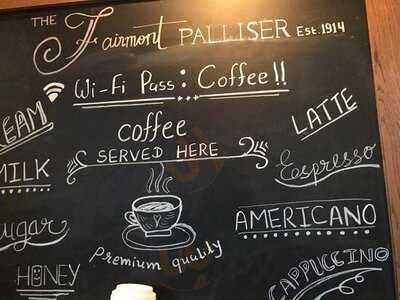 THE Fairmont PALLISER Est. 1914
Wi-Fi Pass: Coffee!!
coffee
SERVED HERE
Premium quality
EAM
MILK
ugar
HONEY
LATTE
Espresso
AMERICANO
CAPPUCCINO